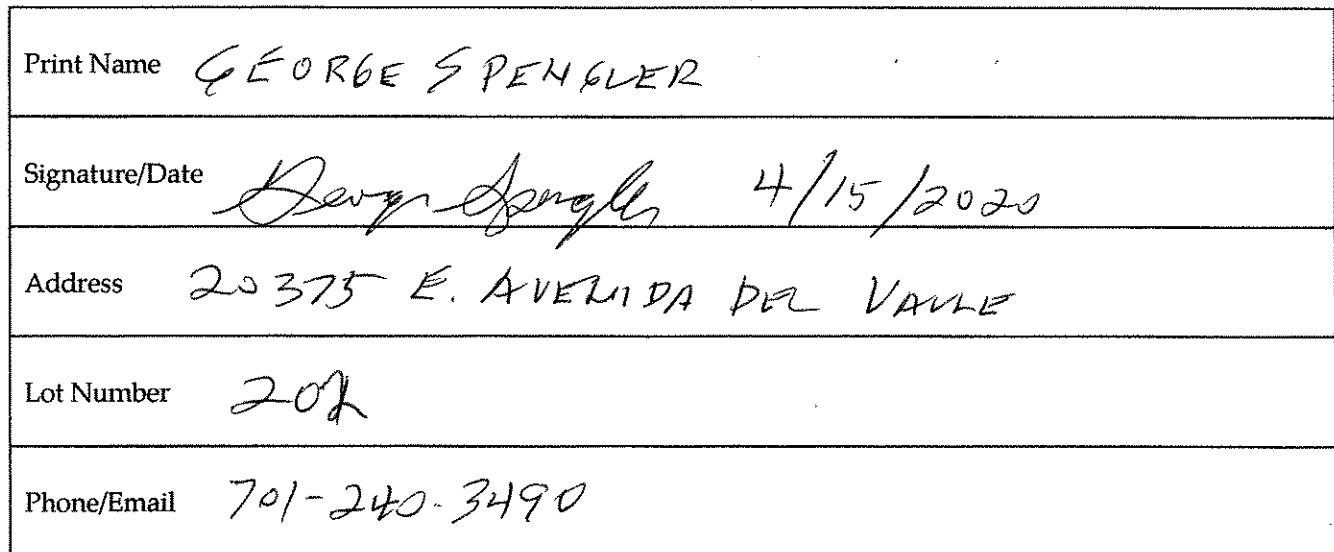 Print Name GEORGE SPENGLER
Signature/Date George Spengler 4/15/2020
Address 20375 E. AVENIDA DEL VALLE
Lot Number
Phone/Email 701-240-3490